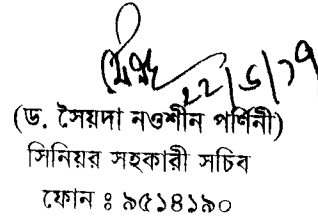 ২২/৬/১৭
(ড. সৈয়দা নওশীন পর্ণিনী)
সিনিয়র সহকারী সচিব
ফোন ঃ ৯৫১৪১৯০